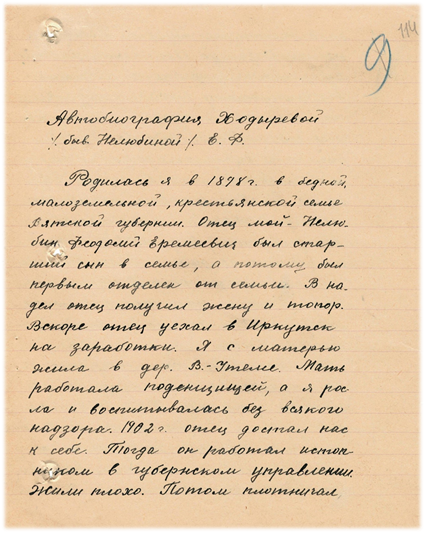 9 114
Автобиография Ходыревой
/ быв. Нелюбиной / Е. Ф.
Родилась я в 1898 г. в бедной,
малоземельной, крестьянской семье
Вятской губернии. Отец мой - Нелю-
бин Феофилий Еремеевич был стар-
ший сын в семье, а потому был
первым отделен от семьи. В на-
дел отец получил жену и топор.
Вскоре отец уехал в Иркутск
на заработки. Я с матерью
жила в дер. В.- Мать
работала поденщицей, а я рос
ла и воспитывалась без всякого
надзора. 1902 г. отец достал нас
к себе. Тогда он работал истоп
ником в губернском управлении.
Жили плохо. Потом плотничал,